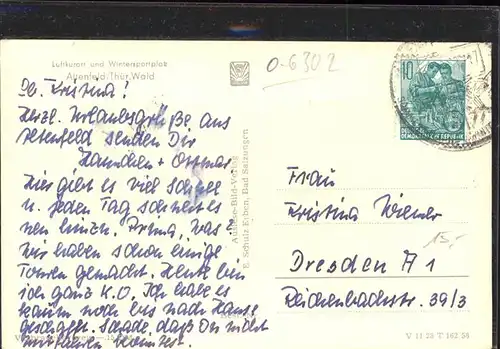 Luftkurort und Wintersportplatz
Altenfeld/Thür. Wald
0-6302
10
DEUTSCHE
DEMOKRATISCHE REPUBLIK
Lb. Kristina!
Herzl. Urlaubsgrüße aus
Altenfeld senden Dir
Hannchen + Ottmar
Hier gibt es viel Schnee
u. jeden Tag schneit es
neu hinzu. Prima, was?
Wir haben schon einige
Touren gemacht. Heute bin
ich ganz K.O. Ich habe es
kaum noch bis nach Hause
geschafft. Schade, daß Du nicht
mitfahren konntest.
Auslese-Bild-Verlag
E. Schulz Erben, Bad Salzungen
Frau
Kristina
Dresden A 1
Reichenbachstr. 39/3
15,-
V 11 28 T 162 58